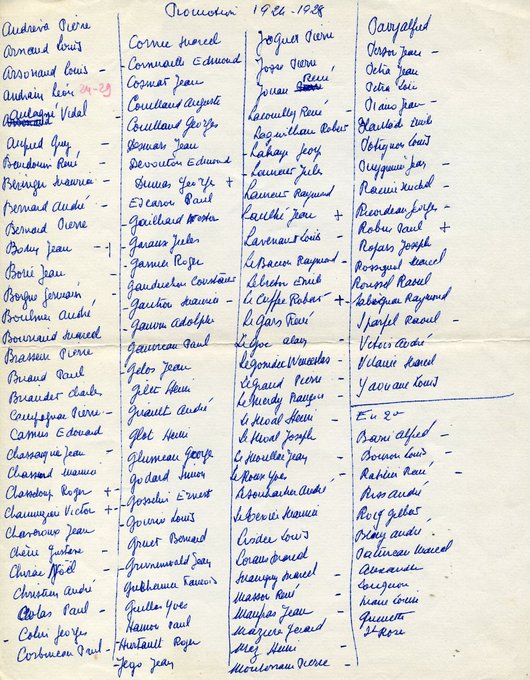 Promotion 1924-1928
Andreva Pierre
Arnaud Louis
Arsonaud Louis -
Audrain Léon 24-29
Aulagné Vidal
Aufred Guy -
Baudouin René -
Beringer Maurice -
Bernard André -
Bernard Pierre
Bodin Jean
Borie Jean
Borgne Germain
Boulmer André
Boursaud Marcel
Brasseur Pierre
Briand Paul
Briandet Charles
Campagnac Pierre -
Cassius Edouard
Chassaque Jean -
Chassard Maurice
Chassdoux Roger +
Chaumezière Victor +
Chaveroux Jean
Chéré Gustave
Chirac Noël
Christien André
Colas Paul -
- Colin Georges
Corbineau Paul -
Cornec Marcel
Cornuaille Edmond
Cosmat Jean
Couillaud Auguste
Couillaud Georges
Desmars Jean
Devouton Edmond
Dumas George +
Escaron Paul
Gaillard
Garaux Jules
Garnier Roger
Ganduchon Constans
Gautron Maurice -
Gauvin Adolphe
Gauvreau Paul
Gelos Jean
Gilet Henri
Girault André
Glot Henri
Glumeau George
Godard Simon
Gosselin Ernest
Gourin Louis
Gruet Bernard
Grunenwald Jean
Francois
Guillos Yves
Hamon Paul
Hurtault Roger
Jego Jean
Joguet Pierre
Josse Pierre
Jouan René
Lacouilly René -
Laquilhan Robert
Lahaye Georg
Laurent Jules
Laurent Raymond
Laulhé Jean +
Lavenant Louis -
Le Barron Raymond -
Lebreton Emile
Le Ceffre Robert +
Le Gars Pierre
Le Goc Alain
Legonidec Wenceslas
Legrand Pierre -
Le Merdy François
Le Moal Henri -
Le Moal Joseph
Le Mouellic Jean
Le Roux Yves
Lesoubacher André
Le Texier Maurice
Lisder Louis
Marcel
Maugey Marcel
Massor René
Maupas Jean
Mazière Gérard
Mrez Henri
Montarnan Pierre -
Pavy Alfred
Person Jean -
Petra Jean
Petra Loïc
Piano Jean -
Plassard Emile
Potignon Louis
Puygrenier Jean
Racine Michel -
Reverdeau George -
Robin Paul +
Ropars Joseph
Rossignol Marcel
Roussel Raoul
Sabagnac Raymond
Sparfel Raoul -
Vetois André
Vilaine Marcel
Yaouanc Louis
En 2e
Barre Alfred -
Bouron Louis -
Rabier René -
Riss André
Rocq Gilbert
Blay André
Patureau Marcel
Alexandre
Lorignon
Marc Louis
Guenette
St Rose